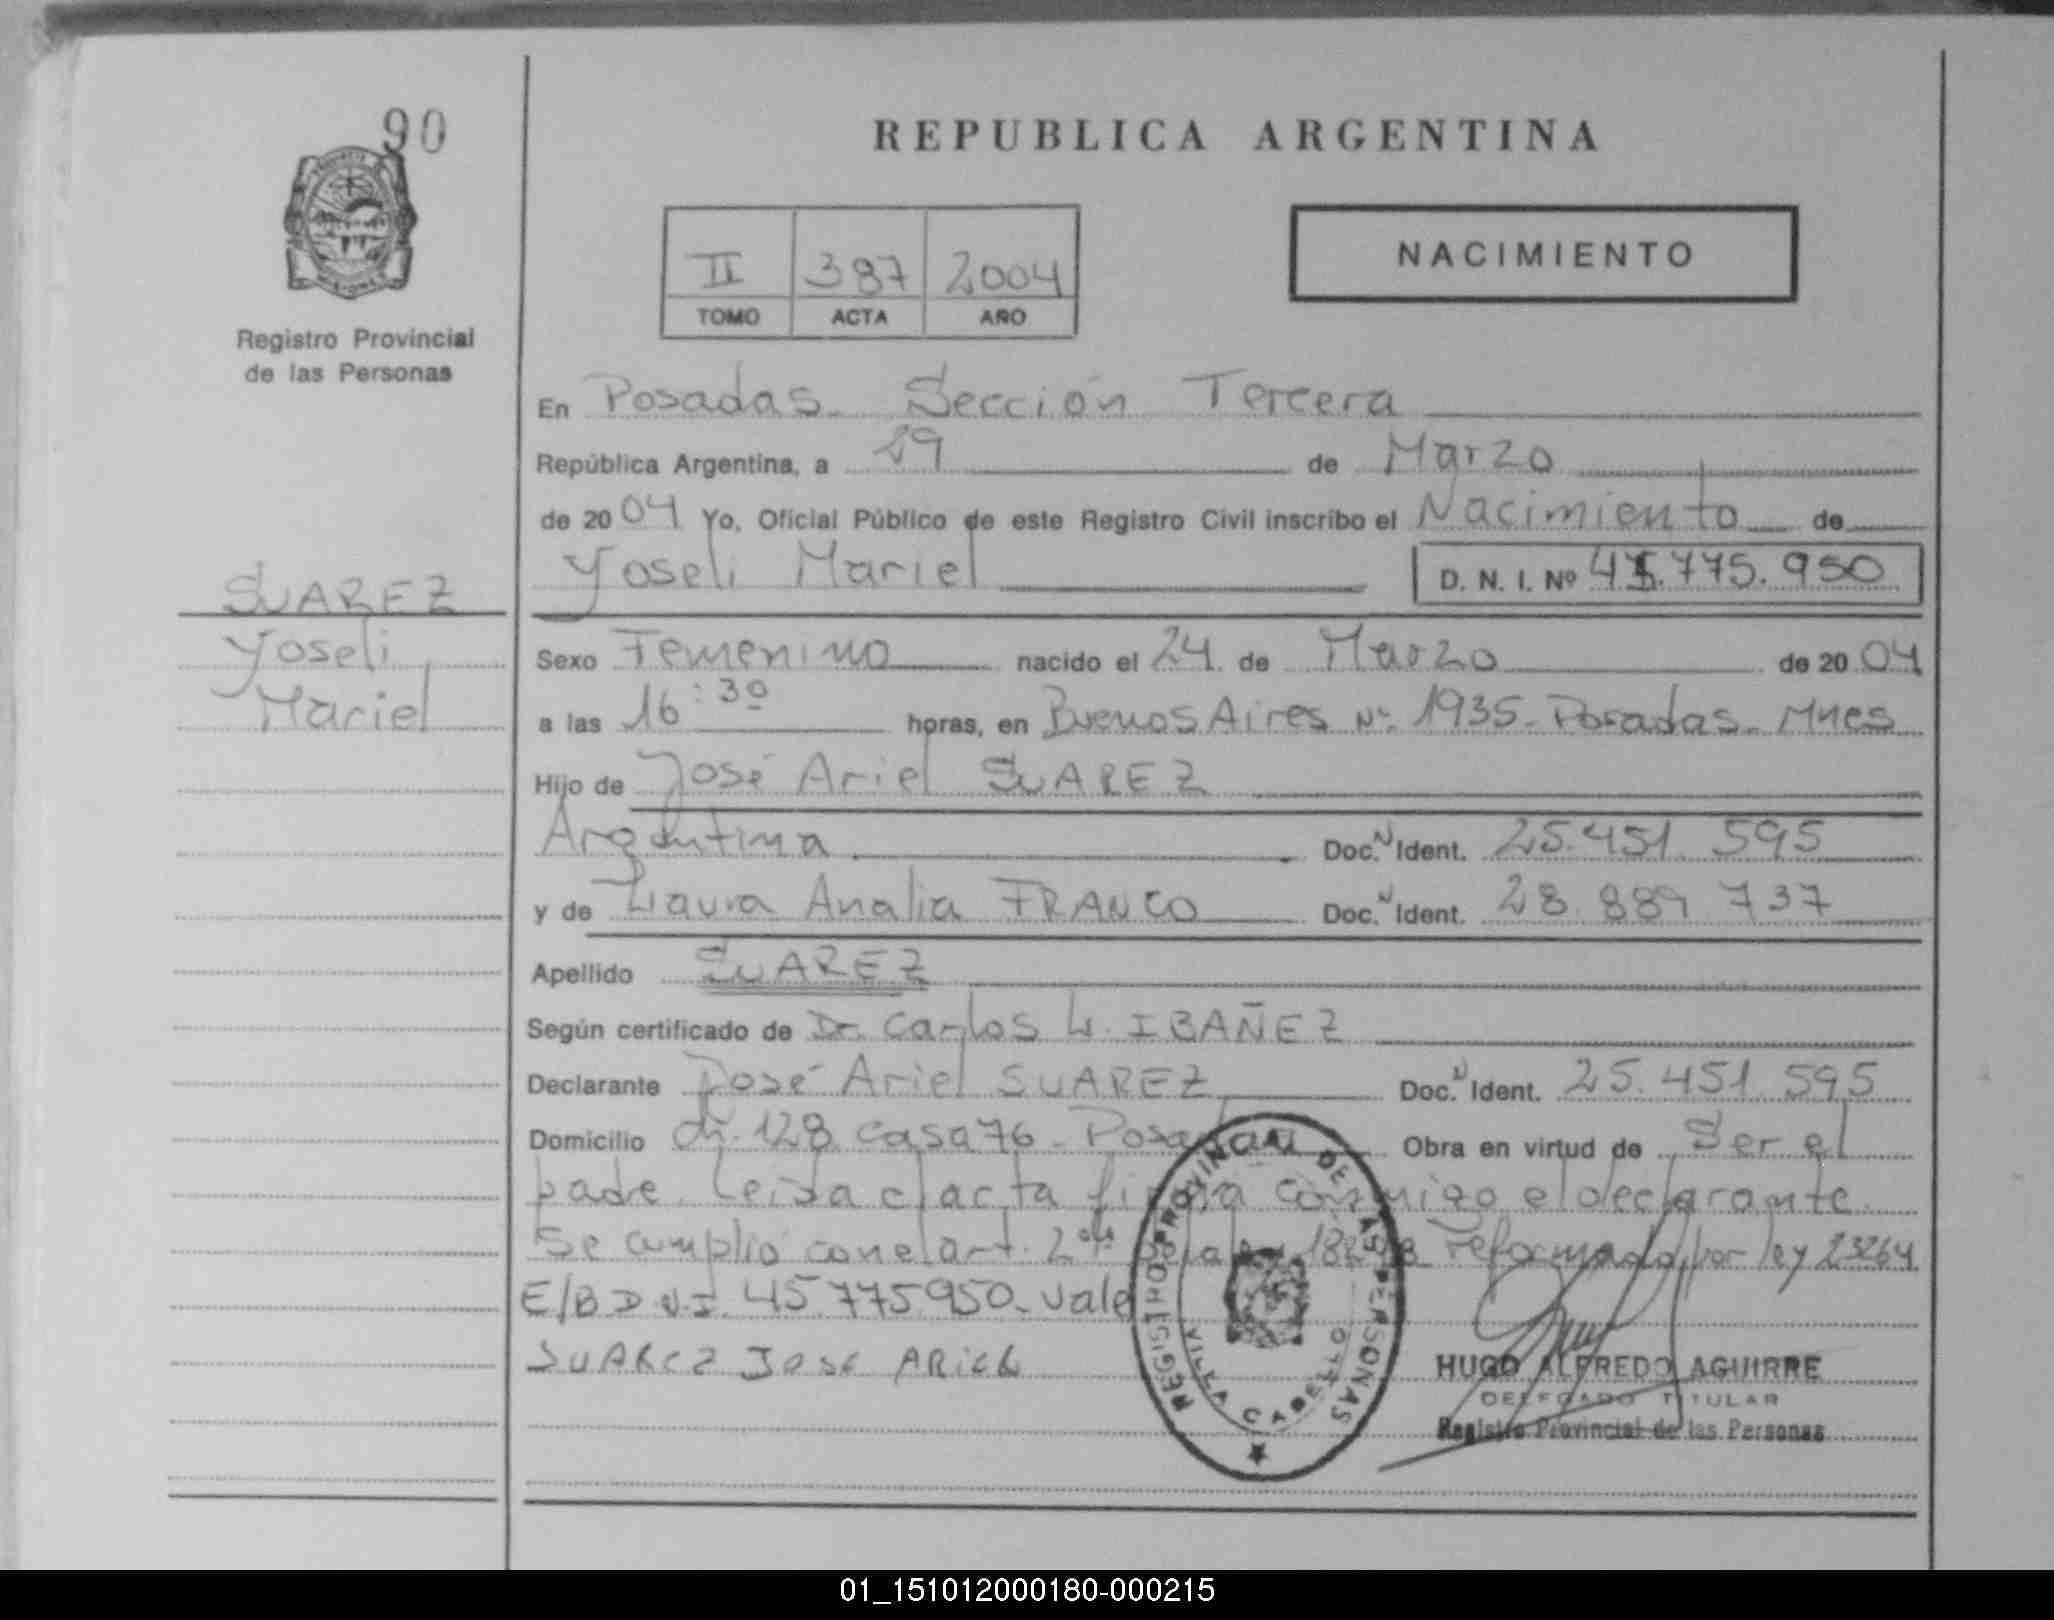 90
REPUBLICA ARGENTINA
NACIMIENTO
II 387 2004
TOMO ACTA AÑO
Registro Provincial
de las Personas
En Posadas. Sección Tercera
República Argentina, a 29 de Marzo
de 2004 Yo, Oficial Público de este Registro Civil inscribo el Nacimiento de
Yoseli Mariel D. N. I. Nº 45.775.950
SUAREZ
Yoseli
Mariel
Sexo Femenino nacido el 24 de Marzo de 2004
a las 16:30 horas, en Buenos Aires Nº 1935. Posadas. Mnes
Hijo de José Ariel SUAREZ
Argentina Doc. N Ident. 25.451.595
y de Laura Analia FRANCO Doc. N Ident. 28.889.737
Apellido SUAREZ
Según certificado de Dr. Carlos L. IBAÑEZ
Declarante José Ariel SUAREZ Doc. N Ident. 25.451.595
Domicilio Ch. 128 casa 76 - Posadas Obra en virtud de Ser el
padre. Leida el acta firma conmigo el declarante.
Se cumplió con el art. 2º de la ley 18248 reformado por ley 23264
E/B D.N.I. 45.775.950. Vale
SUAREZ JOSE ARIEL
REGISTRO PROVINCIAL DE LAS PERSONAS
VILLA CABELLO
HUGO ALFREDO AGUIRRE
DELEGADO TITULAR
Registro Provincial de las Personas
01_151012000180-000215